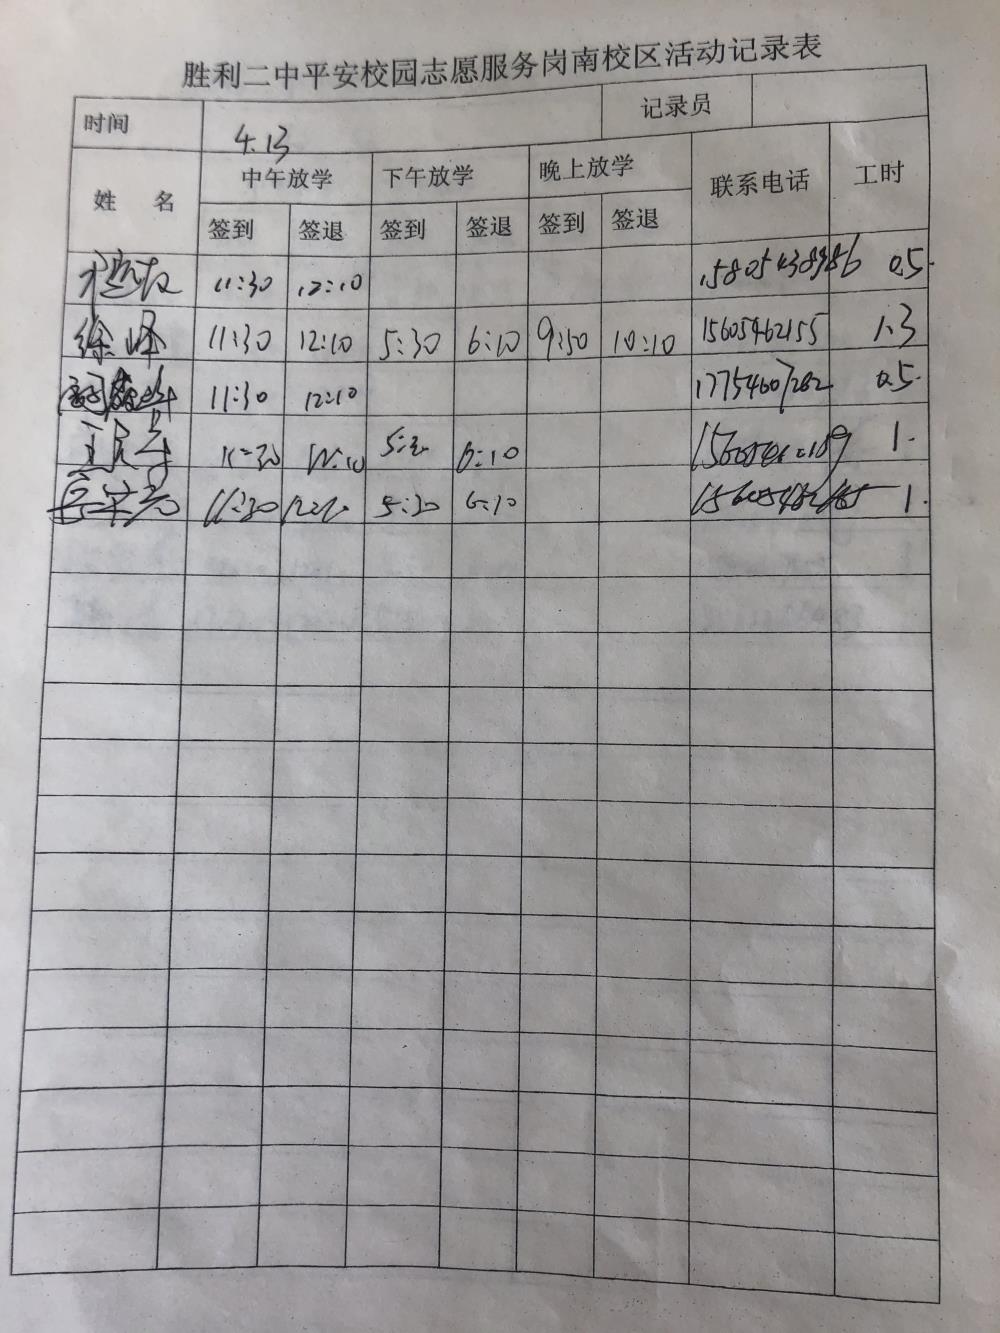 胜利二中平安校园志愿服务岗南校区活动记录表
时间 4.13 记录员
姓 名 中午放学 下午放学 晚上放学 联系电话 工时
签到 签退 签到 签退 签到 签退
11:30 12:10 0.5
徐峰 11:30 12:10 5:30 6:10 9:50 10:10 15605462155 1.3
11:30 12:10 17754607262 0.5
5:30 6:10 1
11:30 5:30 6:10 1